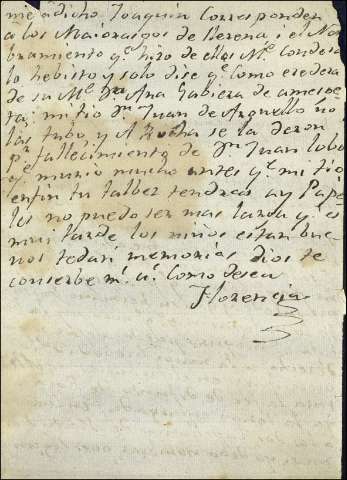 me a dicho Joaquin Corresponden
a los Maiorasgos de Berena i el Nom
bramiento qe. hizo de ellos Me. Condesa
lo he bisto y solo dise qe. Como eredera
de su Me. Da. Ana Gabiera de
mi tio Dn. Juan de Arguello no
los tubo y A Rocha se la deron
pr. fallecimiento de Dn. Juan lobo
qe. murio mucho antes qe. mi tio
enfin tu talbez tendras ay Pape
les no puedo ser mas larga y es
mui tarde los niños estan bue
nos tedan memorias dios te
conserbe ms. as. Como desea
Florencia